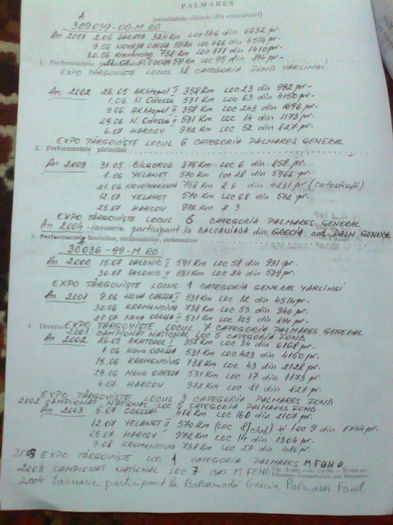 PALMARES
(rezultatele obținute din concursuri)
A
309039-00-M.RO
An 2001 2.06 GALATA 324 KM LOC 146 din 6632 pr.
9.06 NOVAJA ODESA 531KM LOC 466 din 4514 pr.
30.06 Kremencing 738 KM LOC 171 din 1410 pr.
1. Performanțele
EXPO TÂRGOVIȘTE LOCUL 12 CATEGORIA FOND YARLINGI
An 2002 26.05 Aktopol I 358 KM LOC 23 din 982 pr.
1.06 N. Odessa 531 KM LOC 63 din 4150 pr.
9.06 Aktopol II 358 KM LOC 243 din 1696 pr.
29.06 N. Odessa II 531 KM LOC 14 din 1173 pr.
6.07 HARCOV 972 KM LOC 52 din 827 pr.
EXPO TÂRGOVIȘTE LOCUL 6 CATEGORIA PALMARES GENERAL
2. Performanțele părinților
An 2003 31.05 BILGOROD 375 KM LOC 6 din 858 pr.
1.06 YELANET 570 KM LOC 28 din 5966 pr.
21.06 NOVOPSKOV 758 KM Z 6 din 4231 pr. (catastrofă)
12.07 YELANET 570 KM LOC 68 din 572 pr.
25.07 HARCOV 972 KM Z 3
EXPO TÂRGOVIȘTE LOCUL 6 CATEGORIA PALMARES GENERAL
An 2004 - ianuarie participant la BALCANIADA din GRECIA cat. PALM GENERAL
3. Performanțele bunicilor, străbunicilor,
30036-99-M.RO
An 2000 15.07 SALONIC I 591 KM LOC 57 din 931 pr.
30.07 SALONIC II 591 KM LOC 24 din 539 pr.
EXPO TÂRGOVIȘTE LOCUL 1 CATEGORIA GENERAL YARLINGI
An 2001 9.06 NOVA ODESA I 531 KM LOC 12 din 4514 pr.
30.06 KREMENCING 738 KM LOC 53 din 340 pr.
NOVA ODESA II 531 KM LOC 105 din 814 pr.
EXPO TÂRGOVIȘTE LOCUL 7 CATEGORIA PALMARES GENERAL
Diverse
2001 CAMPIONAT NATIONAL LOC 5 CATEGORIA FOND
An 2002 26.05 AKATOPOL I 358 KM LOC 34 din 6168 pr.
1.06 Nova ODESSA 531 KM LOC 423 din 4160 pr.
15.06 KREMENCING 738 KM LOC 43 din 2128 pr.
29.06 Nova ODESSA 531 KM LOC 17 din 1173 pr.
6.07 HARCOV 972 KM LOC 81 din 827 pr.
EXPO TÂRGOVIȘTE LOCUL 3 CATEGORIA PALMARES FOND
2002 CAMPIONAT NATIONAL LOC 4 CATEGORIA PALMARES FOND
An 2003 5.07 ODESSA 418 KM LOC 160 din 2107 pr.
12.07 YELANET II 570 KM (LOC 8) club) Nº LOC 9 din 1744 pr.
25.07 HARCOV 972 KM LOC 14 din 1304 pr.
9.08 KREMENCIUG 738 KM LOC 27 din 416 pr.
2003 EXPO TÂRGOVIȘTE LOC 1 CATEGORIA PALMARES M FOND
2003 CAMPIONAT NATIONAL LOC 7 CAT M FOND
2004 Ianuarie participant la Balcaniada Grecia Palmares Fond